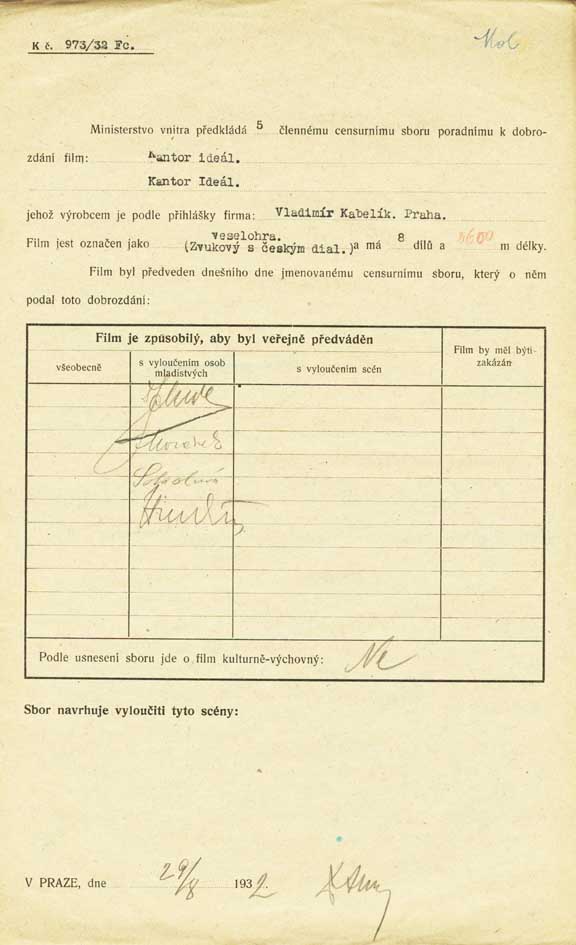 K č. 973/32 Fc.
Ministerstvo vnitra předkládá 5 člennému censurnímu sboru poradnímu k dobro-
zdání film: Kantor ideál.
Kantor Ideál.
jehož výrobcem je podle přihlášky firma: Vladimír Kabelík. Praha.
veselohra.
Film jest označen jako (Zvukový s českým dial.) a má 8 dílů a m délky.
Film byl předveden dnešního dne jmenovanému censurnímu sboru, který o něm
podal toto dobrozdání:
Film je způsobilý, aby byl veřejně předváděn
Film by měl býti-
zakázán
všeobecně
s vyloučením osob
mladistvých
s vyloučením scén
Podle usnesení sboru jde o film kulturně-výchovný: Ne
Sbor navrhuje vyloučiti tyto scény:
V PRAZE, dne 29/8 1932.